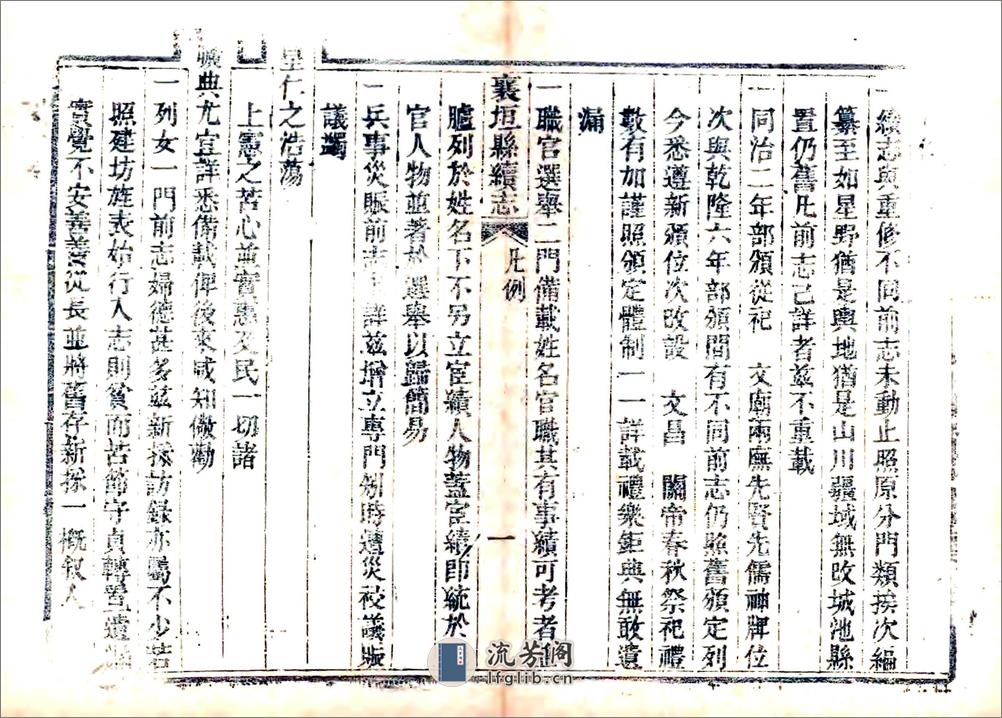 一續志與重修不同前志未動止照原分門類挨次編
纂至如星野猶是輿地猶是山川疆域無改城池縣
置仍舊凡前志已詳者茲不重載
一同治二年部頒從祀　文廟兩廡先賢先儒神牌位
次與乾隆六年部頒間有不同前志仍照舊頒定列
今悉遵新頒位次改設　文昌　關帝春秋祭祀禮
數有加謹照頒定體制一一詳載禮樂鉅典無敢遺
漏
一職官選舉二門備載姓名官職其有事績可考者並
襄垣縣續志　凡例　一
臚列於姓名下不另立宦績人物蓋宦績即統於
官人物並著於選舉以歸簡易
一兵事災賑前志 詳茲增立專門刱時遭災祲議賑
議蠲
皇仁之浩蕩
上憲之苦心並實惠及民一切諸
曠典尤宜詳悉備載俾後來咸知儆勸
一列女一門前志婦德甚多茲新採訪錄亦屬不少若
照建坊旌表始行入志則貧而苦節守貞轉置遺
實覺不安善善從長並將舊存新採一概敘入
流芳閣
lfglib.cn